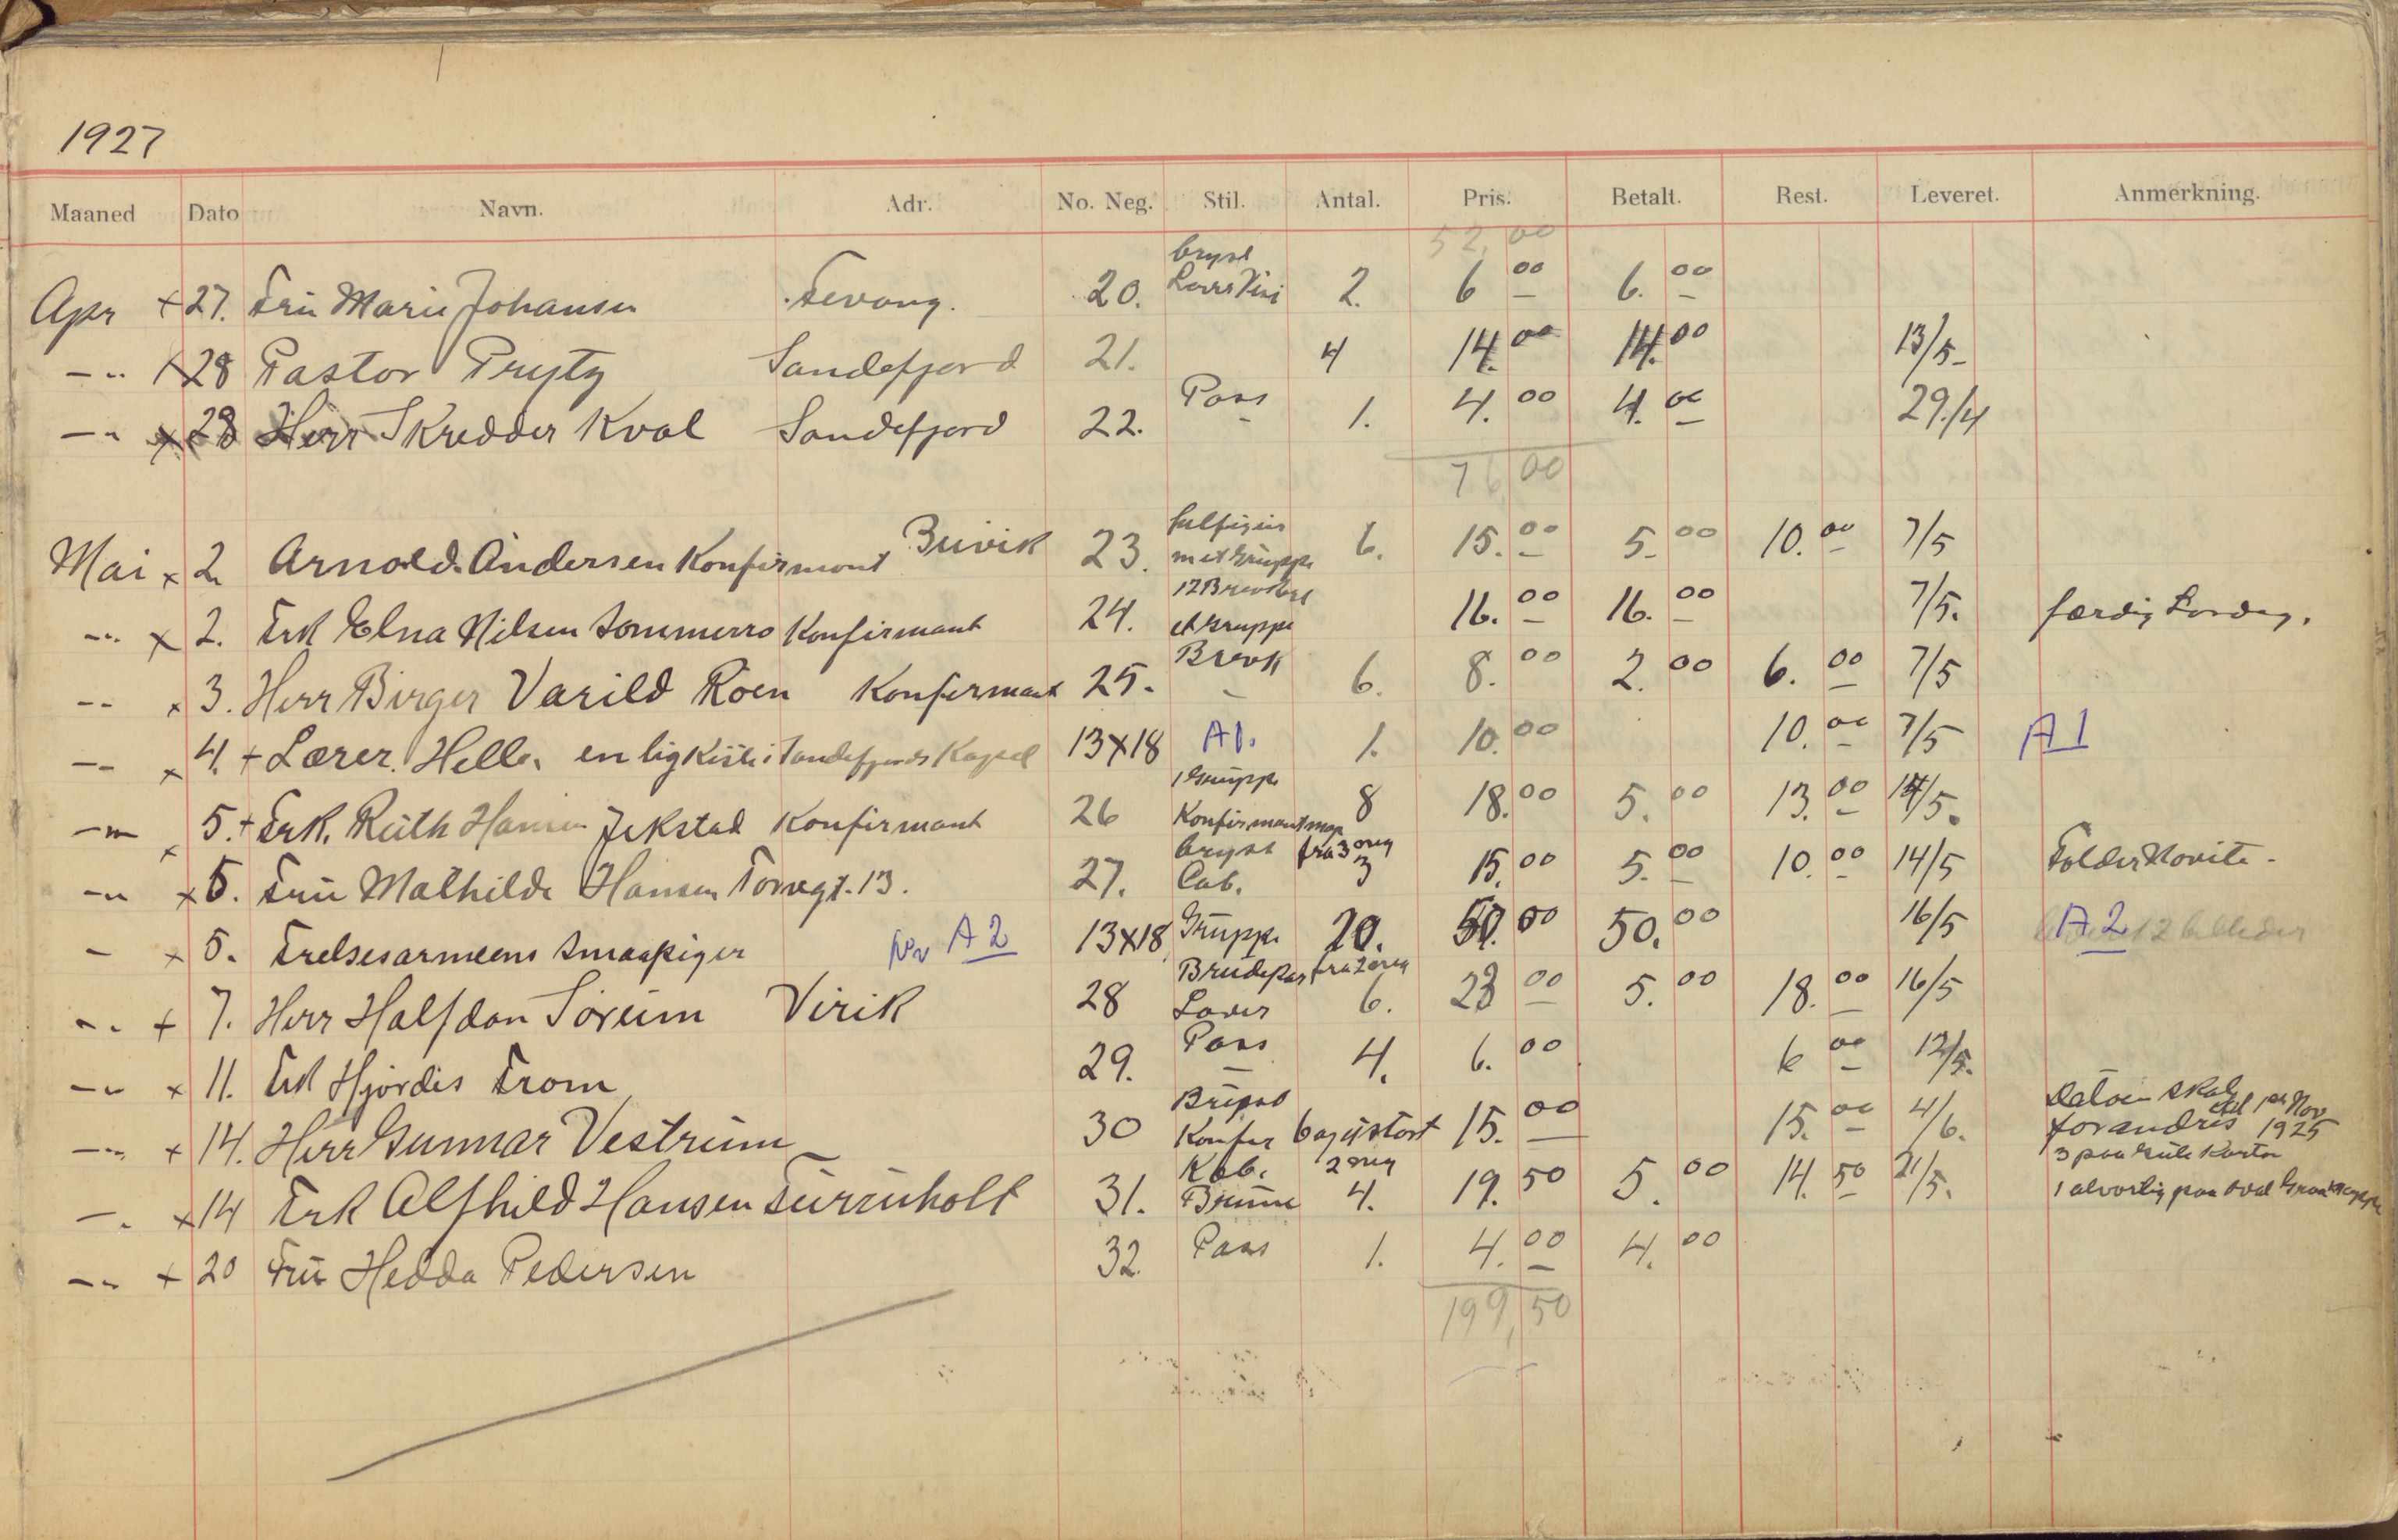 1927
Maaned Dato Navn. Adr. No. Neg. Stil. Antal. Pris. Betalt. Rest. Leveret. Anmerkning.
52,00
Apr x 27. Fru Marie Johansen Fevang. 20. bryst 2. 6 00 6. 00
-"- x 28 Pastor Prytz Sandefjord 21. 4 14. 00 14. 00 13/5-
-"- x 28 Herr Skredder Kval Sandefjord 22. Pass 1. 4. 00 4. 00 29./4
76 00
Mai x 2. Arnold. Andersen Konfirmant Buvik 23. helfigur met Gruppe 6. 15. 00 5. 00 10. 00 7/5
-"- x 2. Frk Elna Nilsen Sommerro Konfirmant 24. 12 Brevkort et Gruppe 16. 00 16. 00 7/5. færdig Lørdag.
-"- x 3. Herr Birger Varild Roen Konfirmant 25. Brevk 6. 8. 00 2. 00 6. 00 7/5
-"- x 4. + Lærer. Helle. en lig Kiste i Sandefjords Kapel 13x18 A1. 1. 10. 00 10. 00 7/5 A1
-"- x 5. + Frk. Ruth Hansen Jekstad Konfirmant 26 1 Gruppe Konfirmantmap 8 18. 00 5. 00 13. 00 14/5.
-"- x 5. Fru Mathilde Hansen Torvegt. 13. 27. bryst Cab. fra 3 neg 3 15. 00 5. 00 10. 00 14/5 Folder Novite -
- x 5. Frelsesarmeens Smaapiger Nr A2 13x18 Gruppe 20. 50. 00 50. 00 16/5 A2 12 billeder
-"- + 7. Herr Halfdan Sørum Virik 28 Brudepar Lover fra 2 neg 6. 23 00 5. 00 18. 00 16/5
-"- x 11. Frk Hjørdis From 29. Pass 4. 6. 00 6 00 12/5.
-"- x 14. Herr Gunnar Vestrum 30 Konfir 15. 00 15. 00 4/6. Datoen skal forandres til Nov 1925
-"- x 14 Frk Alfhild Hansen Furuholt 31. Kab. Brune 2 neg 4. 19. 50 5. 00 14. 50 21/5. 3 paa Gule Karton
1 alvorlig paa oval
-"- + 20 Fru Hedda Pedersen 32. Pass 1. 4. 00 4. 00
199,50